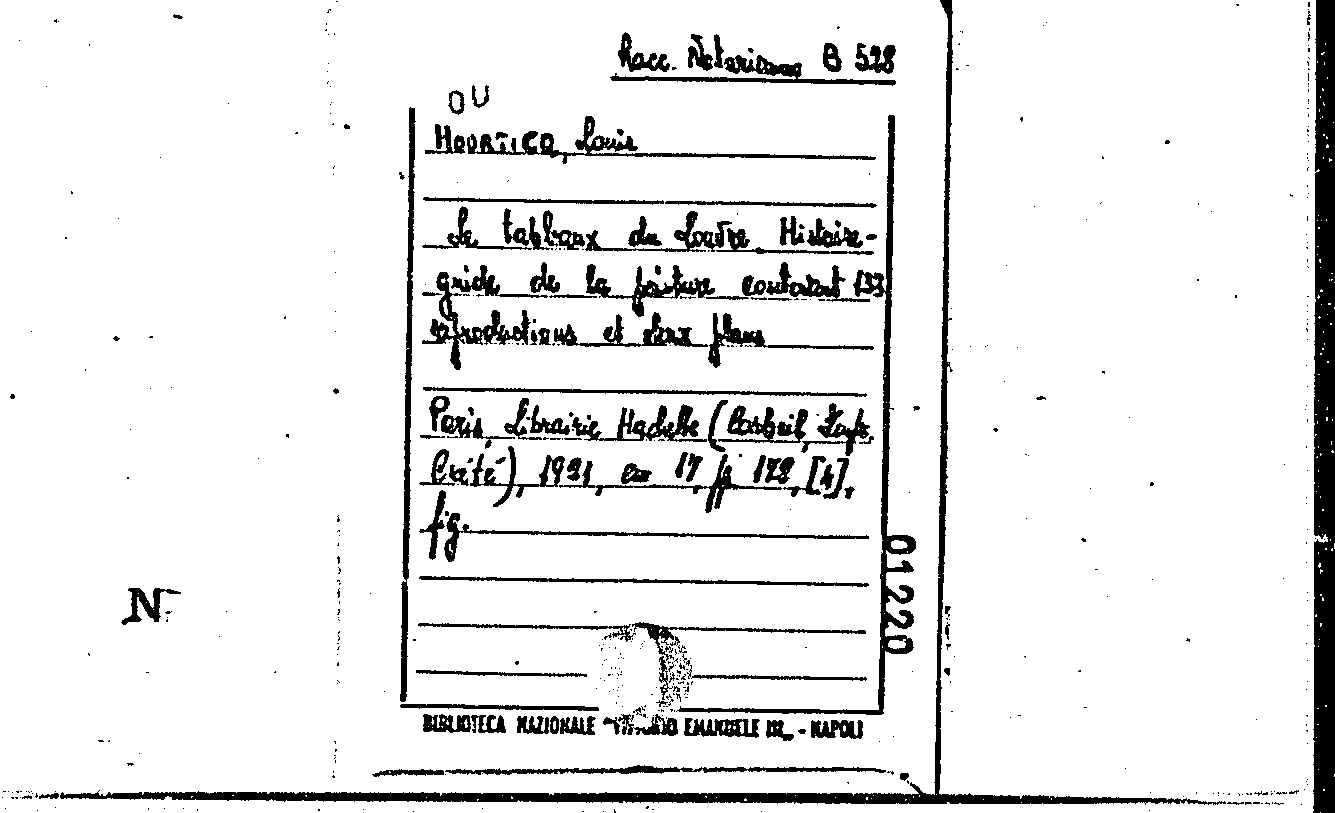 Racc. Notariamo B 528
OU
HOURTICQ, Louis
Le tableaux du Louvre. Histoire-
guide de la peinture contenant 133
reproductions et deux plans
Paris, Librairie Hachette (Corbeil, Impr.
Crété), 1921, in 17, pp. 172, [4],
fig.
01220
N
BIBLIOTECA NAZIONALE "VITTORIO EMANUELE III" - NAPOLI